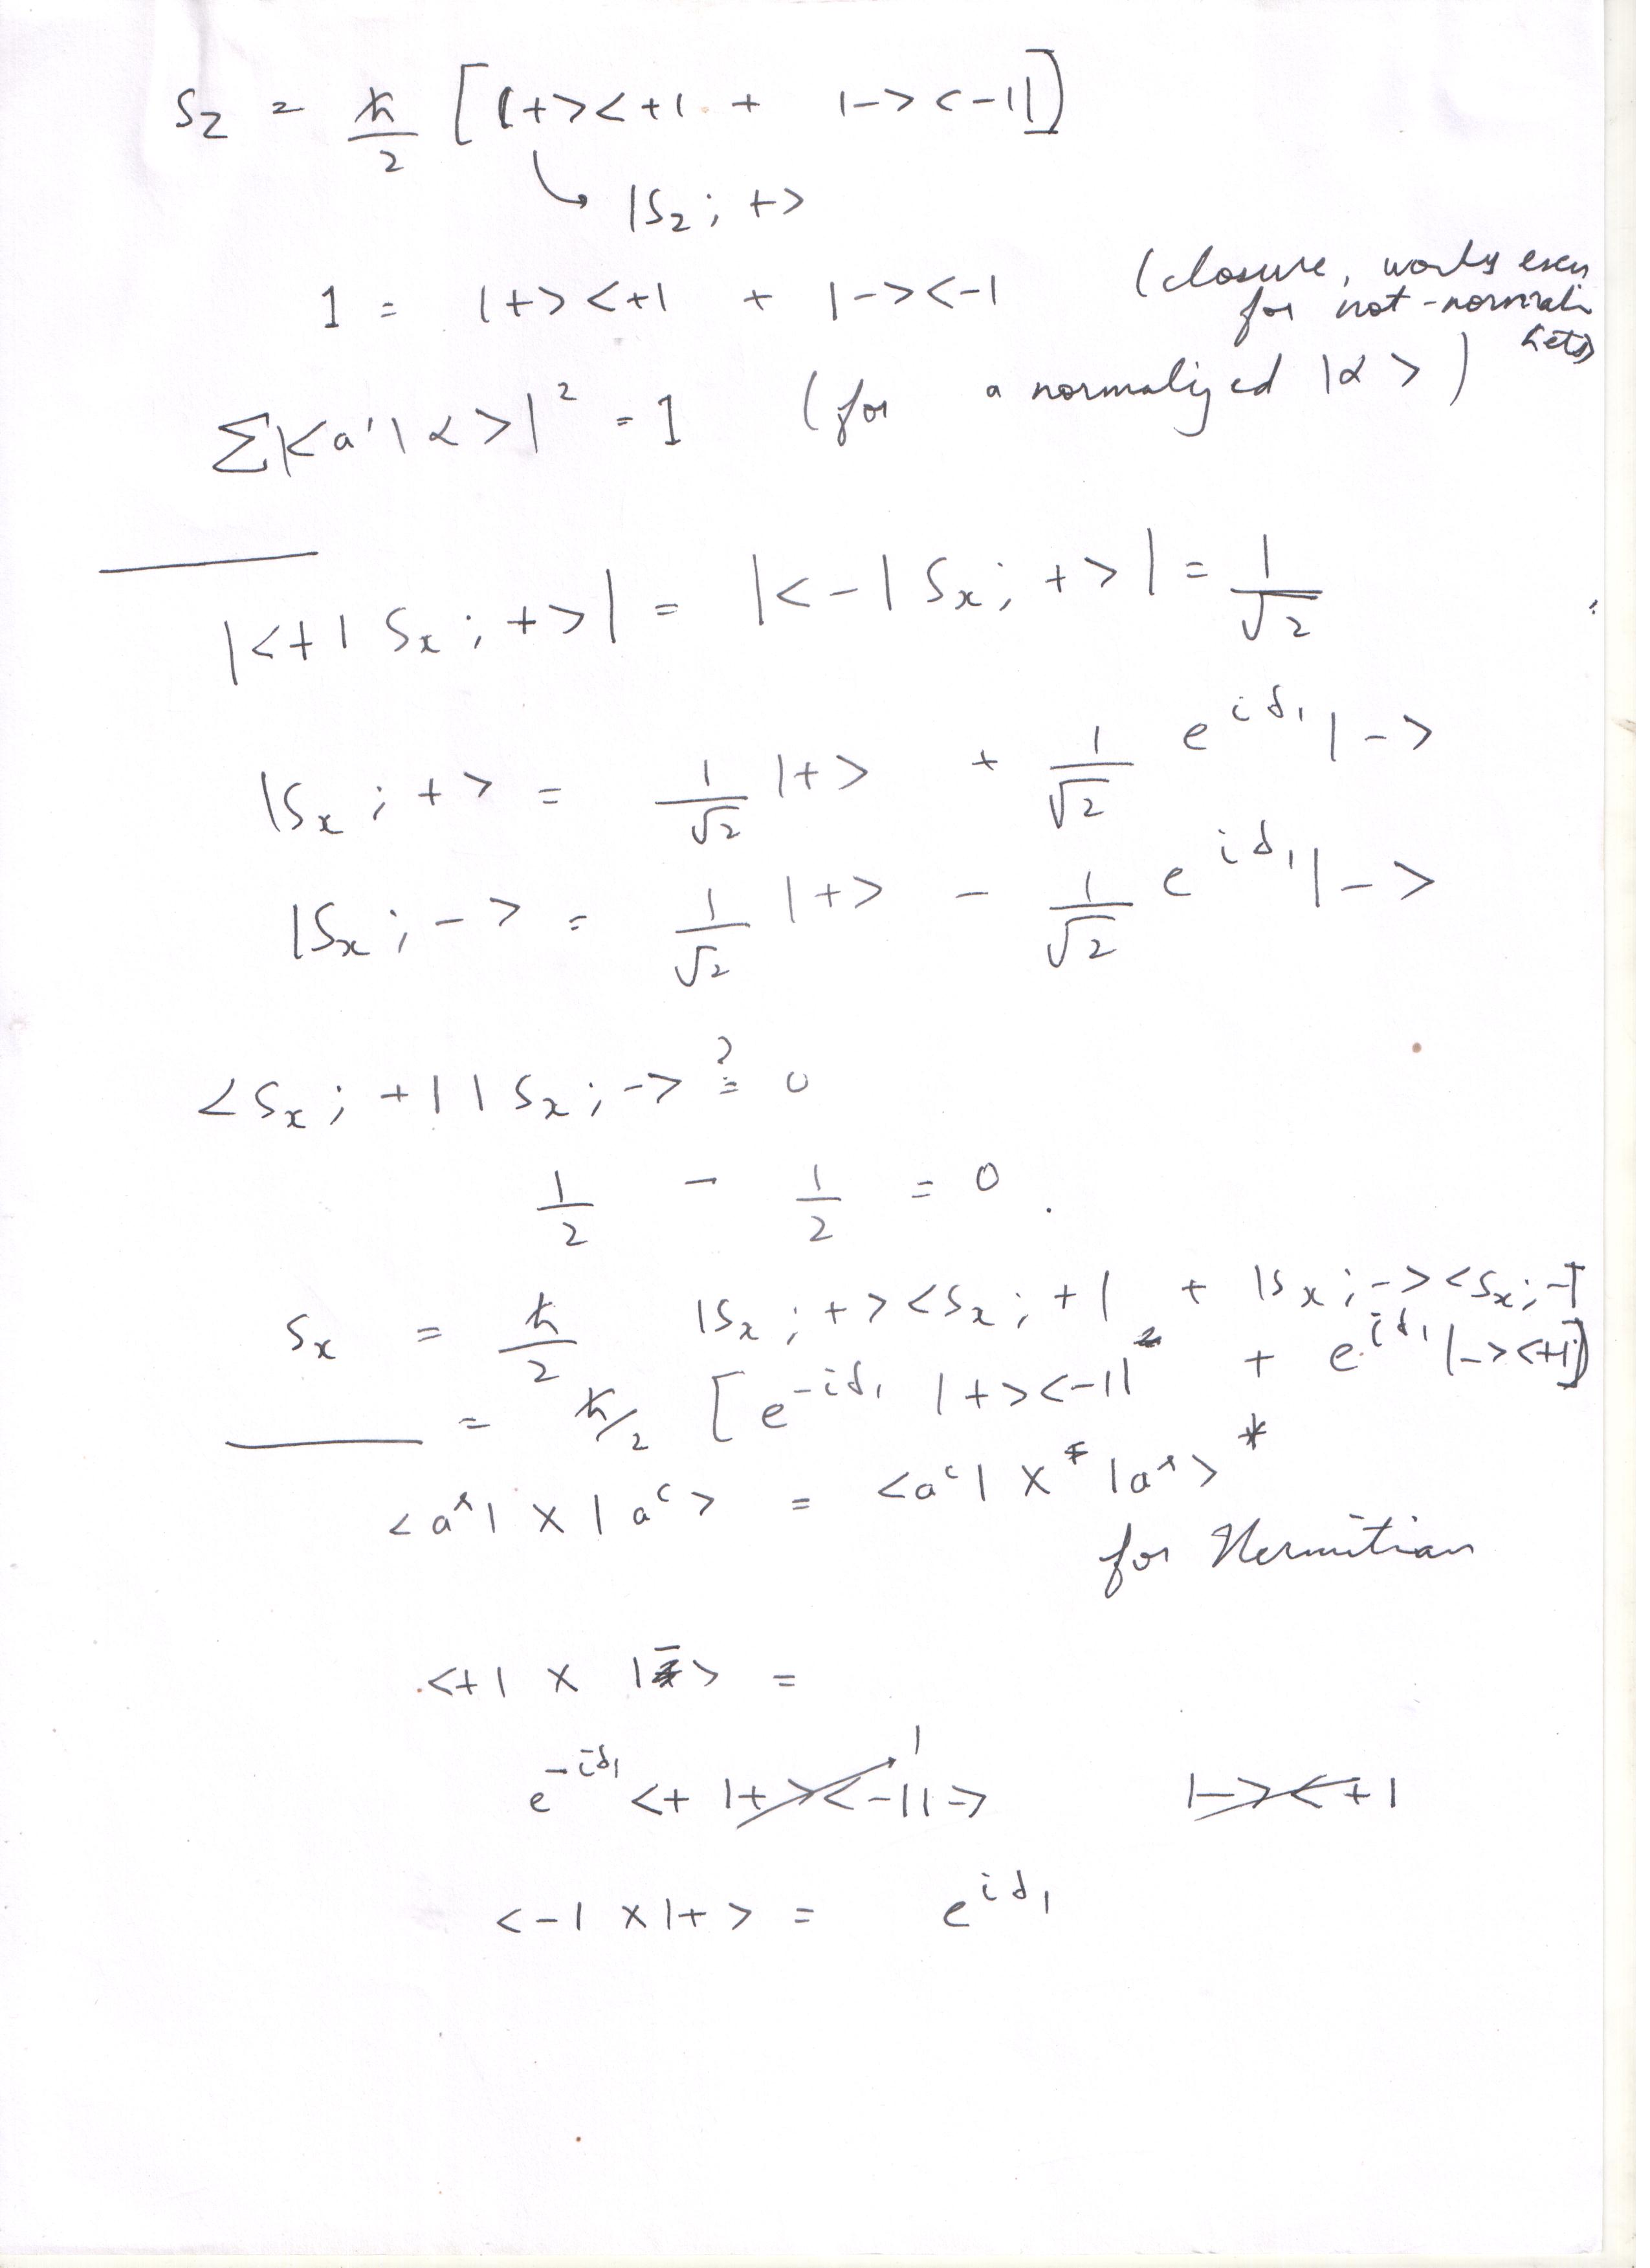 S_z = ℏ/2 [|+><+| + |-><-|]
↳ |S_z ; +>
1 = |+><+| + |-><-| (closure, works even for not-normali kets)
Σ|<a'|α>|² = 1 (for a normalized |α>)
|<+| S_x ; +>| = |<-| S_x ; +>| = 1/√2
|S_x ; +> = 1/√2 |+> + 1/√2 e^{iδ_1} |->
|S_x ; -> = 1/√2 |+> - 1/√2 e^{iδ_1} |->
<S_x ; +| |S_x ; -> ≟ 0
1/2 - 1/2 = 0 .
S_x = ℏ/2 |S_x ; +><S_x ; +| + |S_x ; -><S_x ; -|
= ℏ/2 [e^{-iδ_1} |+><-| + e^{iδ_1} |-><+|]
X |a^c> = <a^c| X
for Hermitian
<+| X |-> =
e^{-iδ_1} <+ |+><-| |-> 1 |-><+|
<-| X |+> = e^{iδ_1}